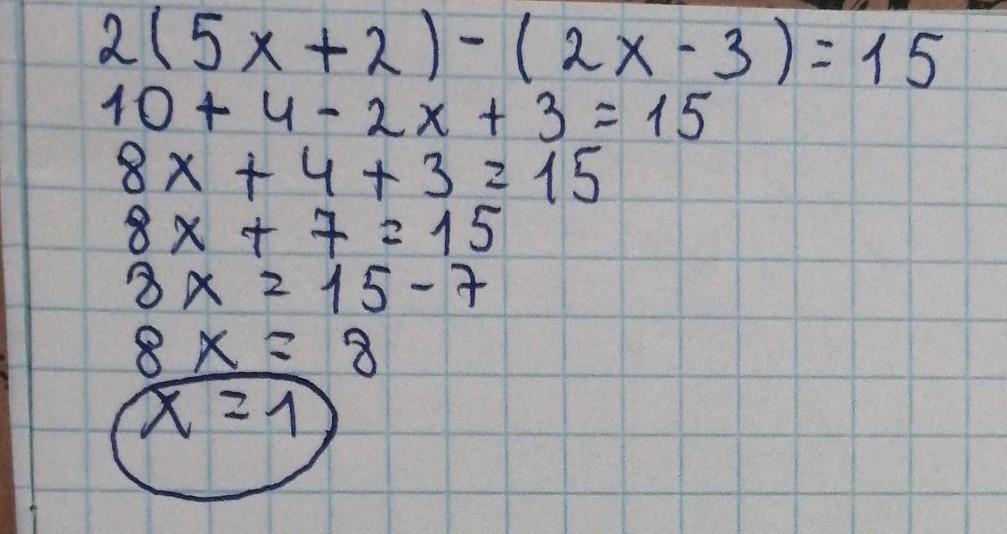 2(5x+2)-(2x-3)=15
10+4-2x+3=15
8x+4+3=15
8x+7=15
8x=15-7
8x=8
x=1